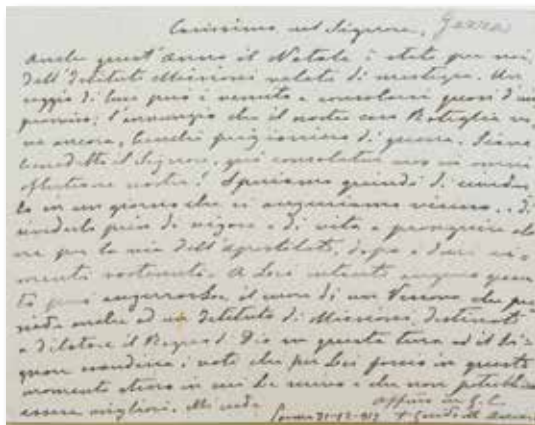 Carissimo nel Signore,
Anche quest'anno il Natale è stato per noi
dell'Istituto Missioni velato di mestizia. Un
raggio di luce però è venuto a consolarci quasi d'im
provviso: l'annunzio che il nostro caro Battaglia vi
ve ancora, benché prigioniero di guerra. Siano
benedetto il Signore, qui consolatur nos in omni
afflictione nostra! Speriamo quindi di
lo in un giorno che ci auguriamo vicino, e di
vederlo pieno di vigore e di vita a proseguire
per la via dell'apostolato, dopo i duri
sostenuti. A Lei intanto auguro quan
to può augurarLe il cuore di un Vescovo che pre
siede anche ad un Istituto di Missioni, destinato
a dilatare il Regno di Dio in questa terra ed il Si
gnore esaudirà i voti che per Lei faccio in questo
momento stesso in cui Le scrivo e che non potrebbero
essere migliori. Mi creda
aff.mo in G. C.
Parma 31-12-917 + Guido M.